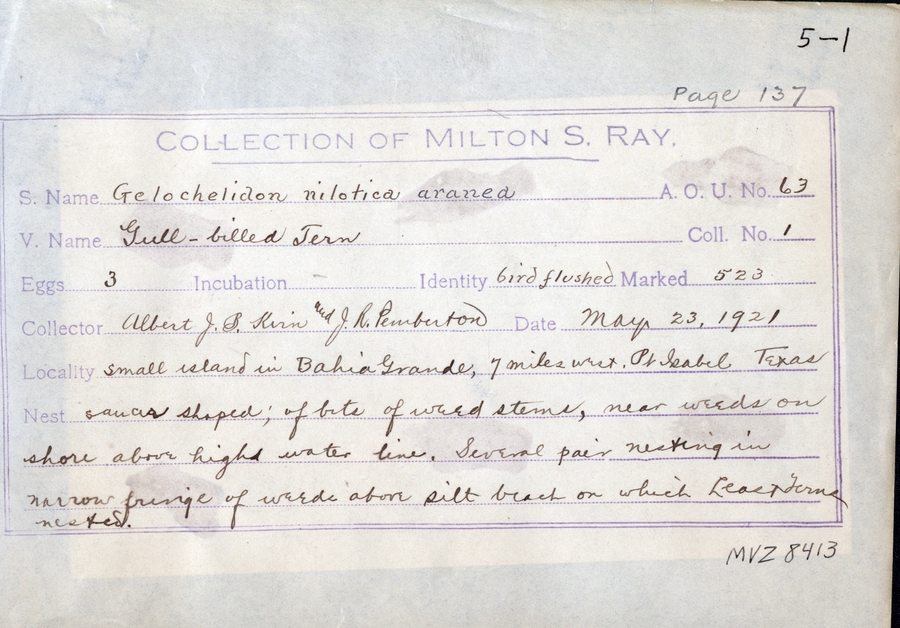 5-1
Page 137
COLLECTION OF MILTON S. RAY.
S. Name Gelochelidon nilotica aranea A. O. U. No. 63
V. Name Gull-billed Tern Coll. No. 1
Eggs 3 Incubation - Identity bird flushed Marked 523
Collector Albert J. B. Kirn and J. R. Pemberton Date May 23, 1921
Locality small island in Bahia Grande, 7 miles west. Pt Isabel Texas
Nest saucer shaped; of bits of weed stems, near weeds on
shore above high water line. Several pair nesting in
narrow fringe of weeds above silt beach on which Least Terns
nested.
MVZ 8413